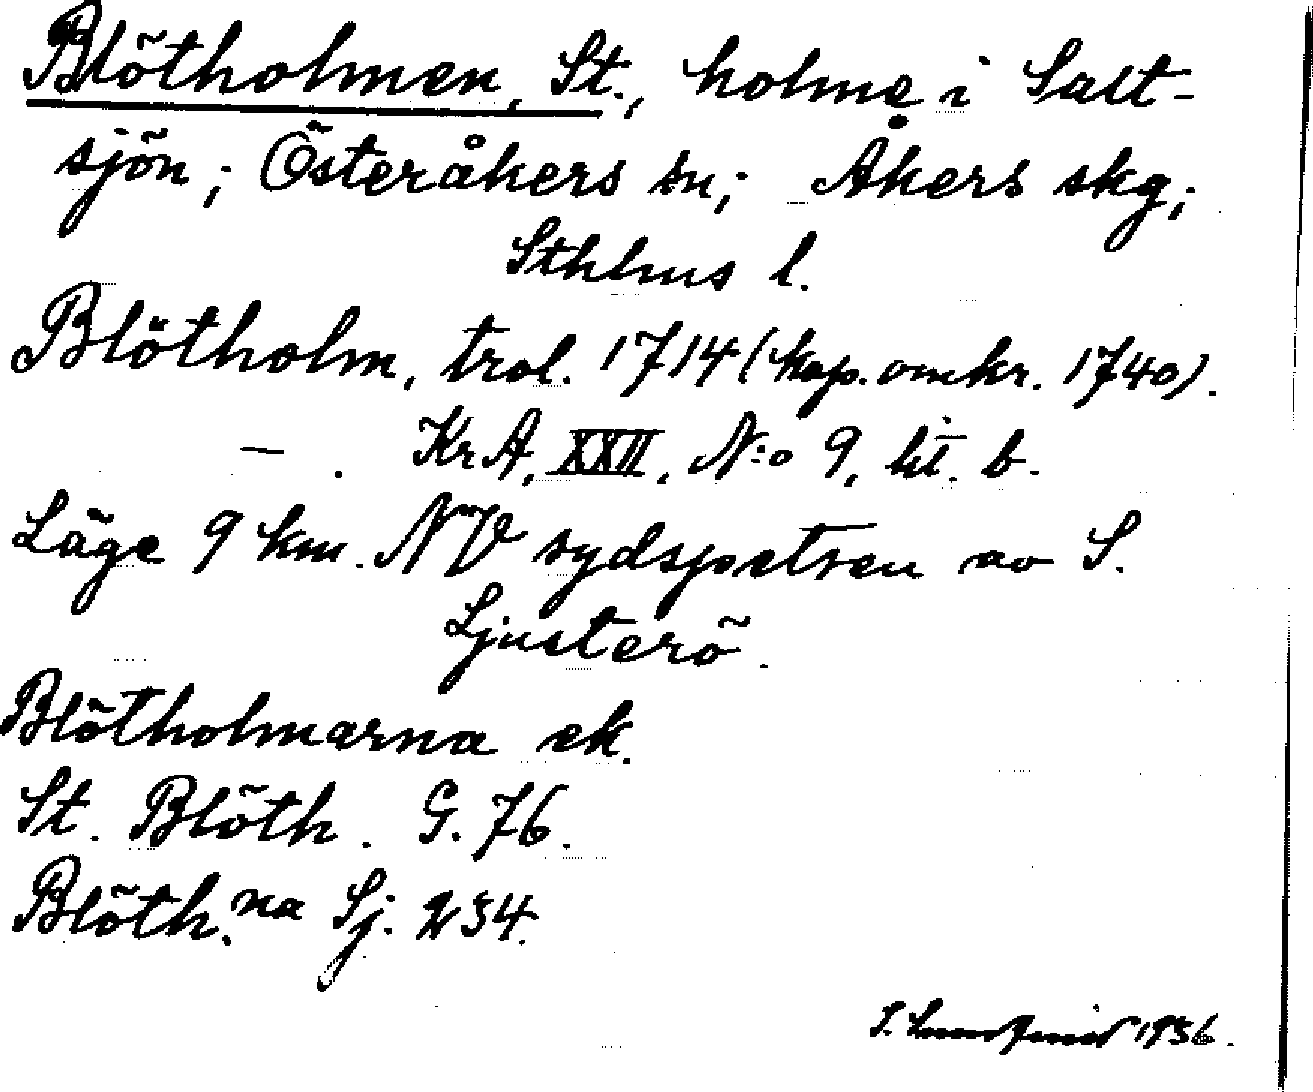 Blötholmen, St., holme i Salt-
sjön; Österåkers sn; Åkers skg;
Sthlms l.
Blötholm, trol. 1714 (kop. omkr. 1740).
— . KrA, XXII, N:o 9, lit. b.
Läge 9 km. NV sydspetsen av S.
Ljusterö.
Blötholmarna ek.
St. Blöth. G. 76.
Blöth.na Sj. 234.
S. 1936.